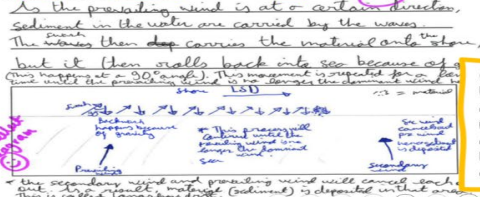 As the prevailing wind is at a certain direction,
sediment in the water are carried by the waves.
swash
The waves then carries the material onto the shore,
but it then rolls back into sea because of
(This happens at a 90° angle). This movement is repeated for a
time until the prevailing wind is no longer the dominant wind
shore LSD
= material
Swash
Backwash
happens because
of gravity
* This process will
continue until the
prevailing wind is no
longer the dominant
wind.
Sea
Prevailing
wind
secondary
wind
is deposited
diagram
* the secondary wind and prevailing wind will cancel each
out. As a result, material (sediment) is deposited in that area
This is called longshore drift.